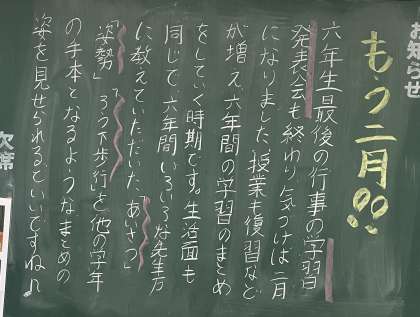 お知らせ
もう二月!!
六年生最後の行事の学習
発表会も終わり、気づけば二月
になりました。授業も復習など
が増え、六年間の学習のまとめ
をしていく時期です。生活面も
同じで、六年間いろいろな先生方
に教えていただいた、「あいさつ」
「姿勢」「ろう下歩行」と他の学年
の手本となるようなまとめの
姿を見せられるといいですね♪
欠席